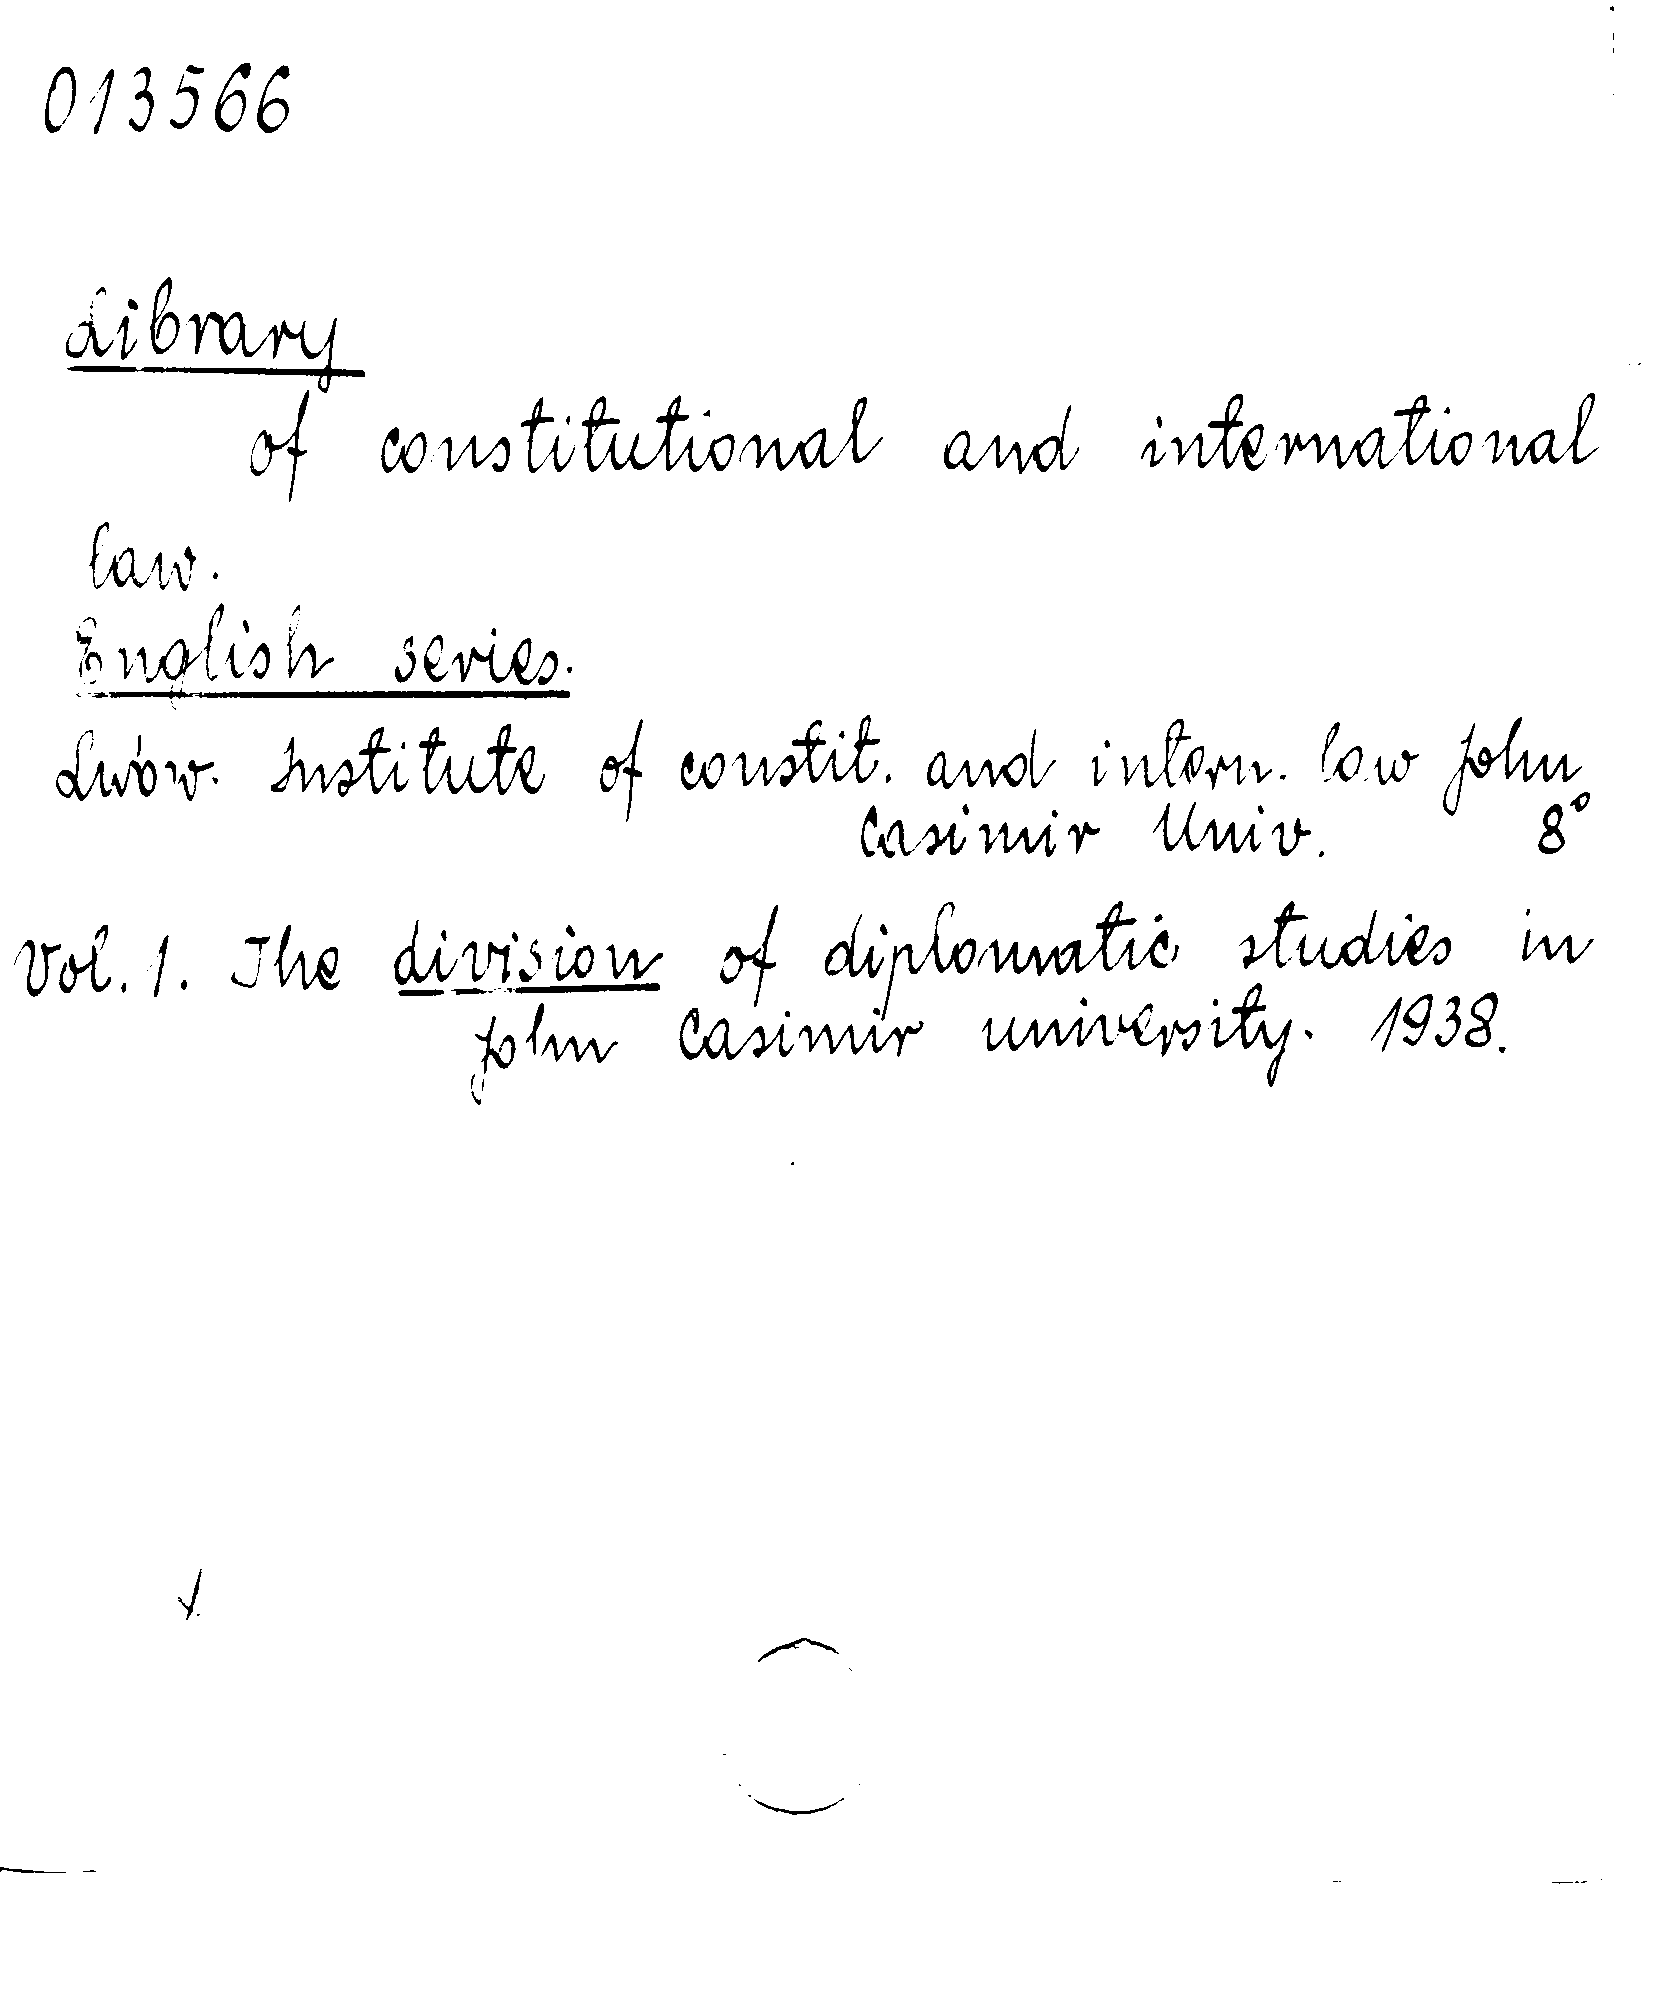 013566
Library
of constitutional and international
law.
English series.
Lwów. Institute of constit. and intern. law John
Casimir Univ. 8°
Vol. 1. The division of diplomatic studies in
John Casimir university. 1938.